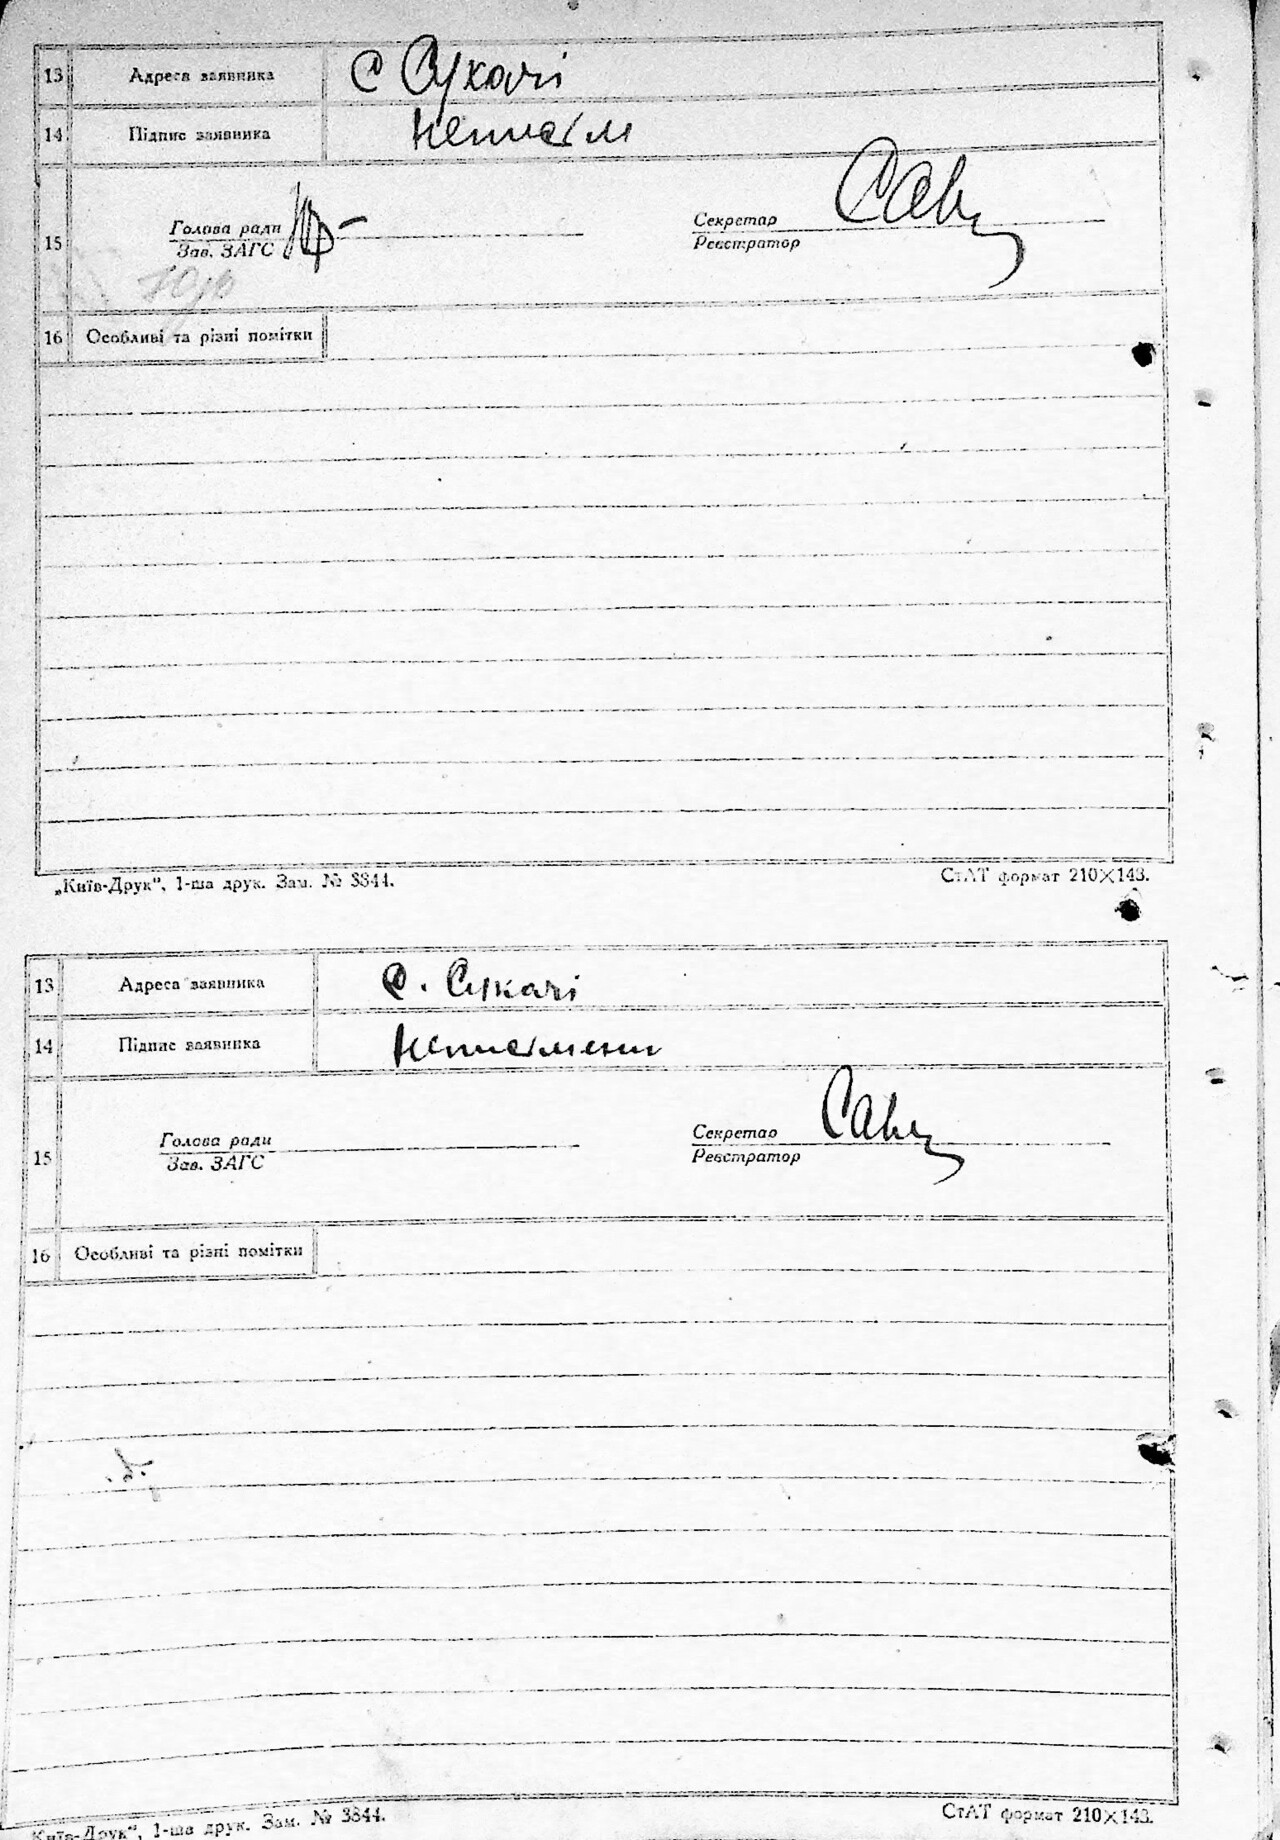 13 Адреса заявника с Сукачі
14 Підпис заявника неписьм
15 Голова ради Секретар
Зав. ЗАГС Реєстратор
16 Особливі та різні помітки
„Київ-Друк“, 1-ша друк. Зам. № 3844. СтАТ формат 210×143.
13 Адреса заявника с. Сукачі
14 Підпис заявника неписьмени
15 Голова ради Секретар
Зав. ЗАГС Реєстратор
16 Особливі та різні помітки
Київ-Друк“, 1-ша друк. Зам. № 3844. СтАТ формат 210×143.